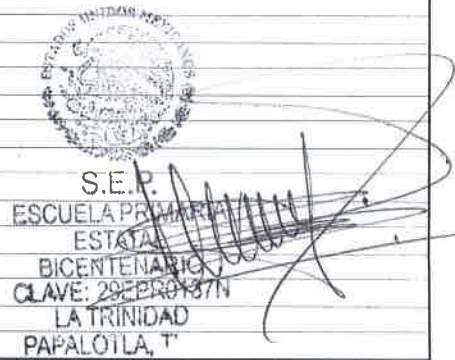 ESTADOS UNIDOS MEXICANOS
S.E.P.
ESCUELA PRIMARIA
ESTATAL
BICENTENARIO
CLAVE: 29EPR0137N
LA TRINIDAD
PAPALOTLA, T